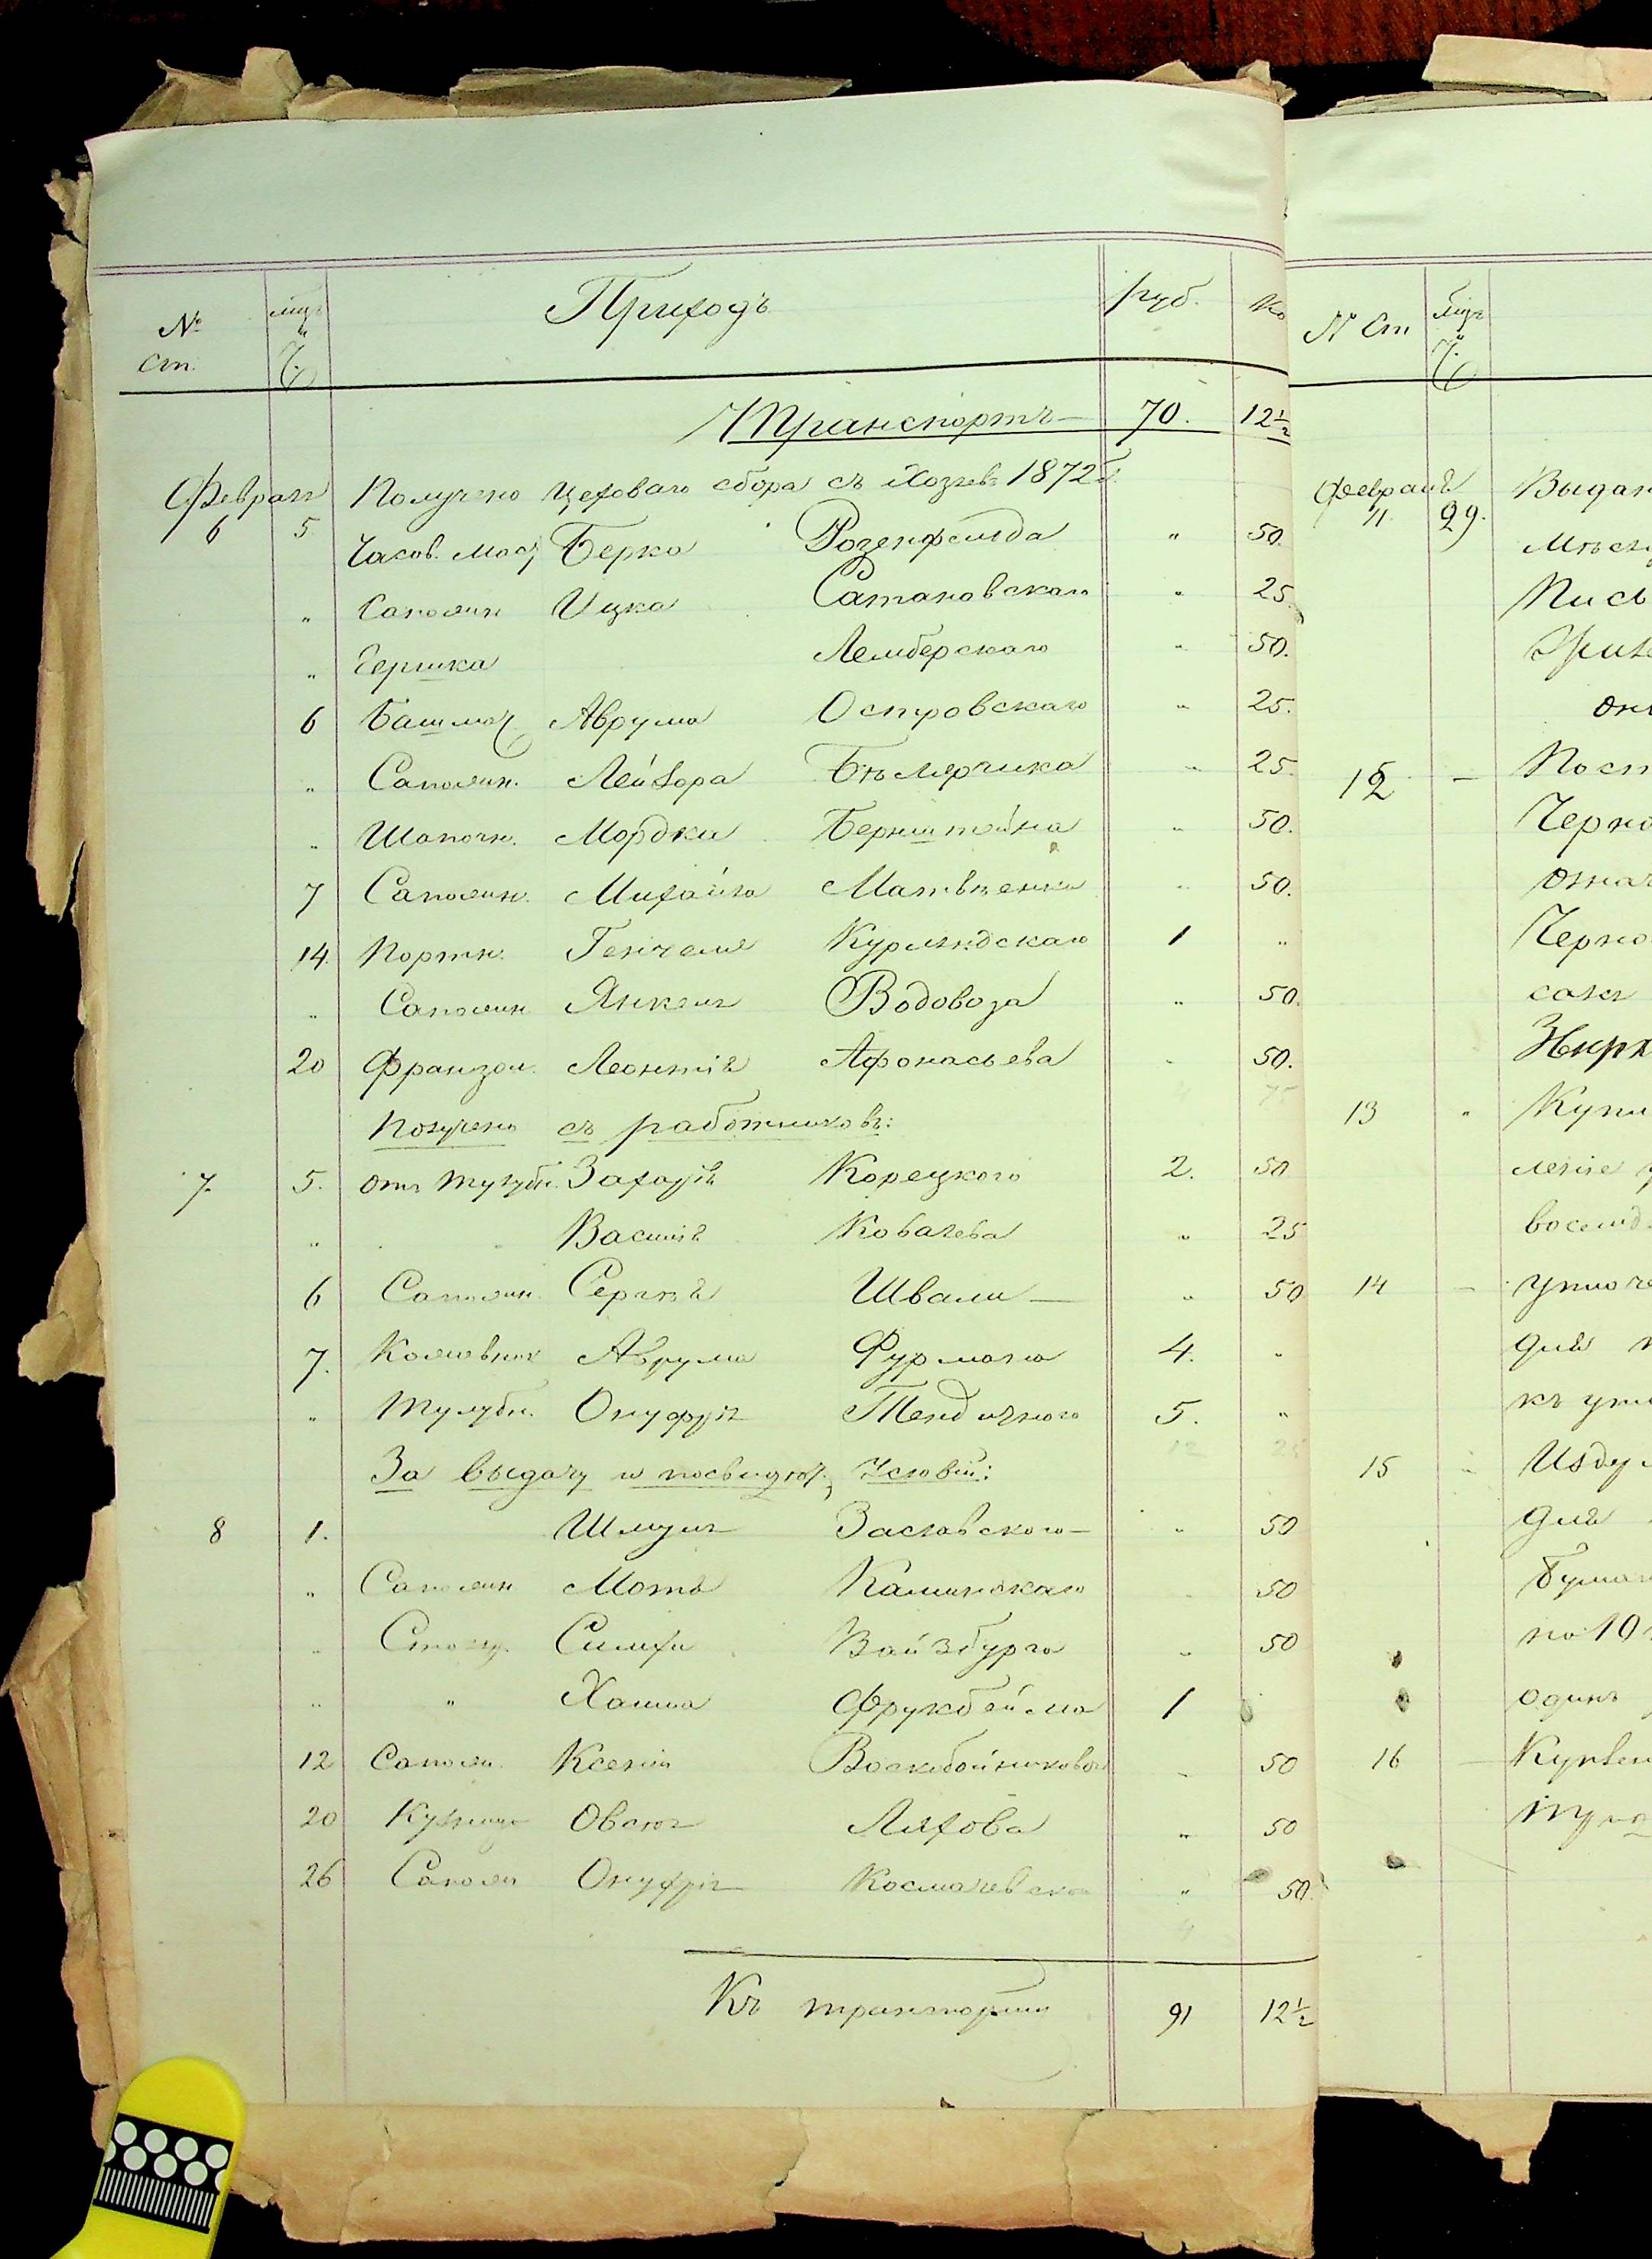 № ст. мцъ и Ч. Приходъ руб. Ко
Транспортъ — 70. 12½
Февраля Получено цеховаго сбора съ Хозяевъ 1872 г.
6 5 Часов. маст. Берка Розенфельда " 50.
" Сапожн Ицка Сатановскаго " 25.
" Гершка Лемберскаго " 50.
6 Башмач. Аврума Островскаго " 25.
" Сапожн. Лейзора Бѣлярчика " 25.
" Шапочн. Мордка Бернштейна " 50.
7 Сапожн. Михайла Матвѣенки " 50.
14. Портн. Генчеля Курляндскаго 1 "
" Сапожн Янкеля Водовоза " 50.
20 Францон. Леонтія Афонасьева " 50.
Получено съ работниковъ:
7. 5. отъ тулубн. Захарія Корецкого 2. 50
" Василія Ковалева " 25
6 Сапожн. Сергѣя Швали — " 50
7. Аврума Фурмана 4. "
" Тулубн. Онуфрія Тендичного 5. "
За выдачу и посвидѣт. Условій:
8 1. Шмуля Заславского — " 50
" Сапожн Мотя Каминскаго 50
" Столяр. Симхи Вайзбурга " 50
" " Хаима Фрукбейма 1
12 Сапожн. Ксенія Воскобойниковой " 50
20 Кузнец Овсея Ляхова " 50
26 Сапожн Онуфрія Космачевска " 50.
Къ транспорту 91 12½
N Ст мцъ и Ч.
Февраля Выдан
11. 29.
Мѣсяц
Пись
12 —
Посп
Черно
означ
Черно
сажъ
13 " Купл
леніе
восемд
14 — утюге
для
къ утю
15 " Издул
для
Бумаги
по 10
одинъ
16 —